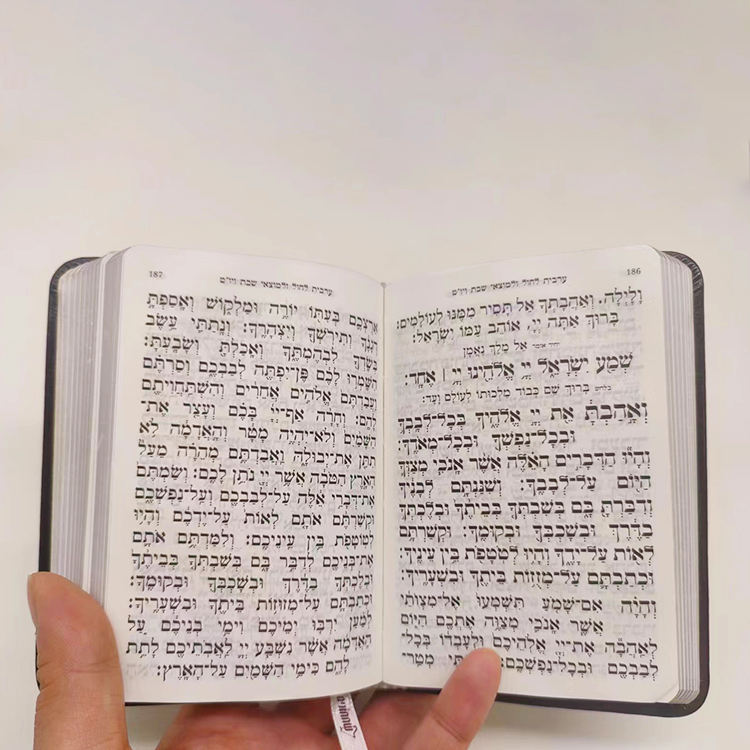 עֲרָבִית לְחוֹל וּלְמוֹצָאֵי שַׁבָּת וְיוֹ״ט 186
וָלָיְלָה. וְאַהֲבָתְךָ אַל תָּסִיר מִמֶּנּוּ לְעוֹלָמִים:
בָּרוּךְ אַתָּה יְיָ, אוֹהֵב עַמּוֹ יִשְׂרָאֵל:
יחיד אומר אֵל מֶלֶךְ נֶאֱמָן
שְׁמַע יִשְׂרָאֵל יְיָ אֱלֹהֵינוּ יְיָ ׀ אֶחָד:
בלחש בָּרוּךְ שֵׁם כְּבוֹד מַלְכוּתוֹ לְעוֹלָם וָעֶד:
וְאָהַבְתָּ אֵת יְיָ אֱלֹהֶיךָ בְּכָל־לְבָבְךָ
וּבְכָל־נַפְשְׁךָ וּבְכָל־מְאֹדֶךָ:
וְהָיוּ הַדְּבָרִים הָאֵלֶּה אֲשֶׁר אָנֹכִי מְצַוְּךָ
הַיּוֹם עַל־לְבָבֶךָ: וְשִׁנַּנְתָּם לְבָנֶיךָ
וְדִבַּרְתָּ בָּם בְּשִׁבְתְּךָ בְּבֵיתֶךָ וּבְלֶכְתְּךָ
בַדֶּרֶךְ וּבְשָׁכְבְּךָ וּבְקוּמֶךָ: וּקְשַׁרְתָּם
לְאוֹת עַל־יָדֶךָ וְהָיוּ לְטֹטָפֹת בֵּין עֵינֶיךָ:
וּכְתַבְתָּם עַל־מְזֻזוֹת בֵּיתֶךָ וּבִשְׁעָרֶיךָ:
וְהָיָה אִם־שָׁמֹעַ תִּשְׁמְעוּ אֶל־מִצְוֹתַי
אֲשֶׁר אָנֹכִי מְצַוֶּה אֶתְכֶם הַיּוֹם
לְאַהֲבָה אֶת־יְיָ אֱלֹהֵיכֶם וּלְעָבְדוֹ בְּכָל־
לְבַבְכֶם וּבְכָל־נַפְשְׁכֶם: מְטַר־
עֲרָבִית לְחוֹל וּלְמוֹצָאֵי שַׁבָּת וְיוֹ״ט 187
אַרְצְכֶם בְּעִתּוֹ יוֹרֶה וּמַלְקוֹשׁ וְאָסַפְתָּ
דְגָנֶךָ וְתִירֹשְׁךָ וְיִצְהָרֶךָ: וְנָתַתִּי עֵשֶׂב
בְּשָׂדְךָ לִבְהֶמְתֶּךָ וְאָכַלְתָּ וְשָׂבָעְתָּ:
הִשָּׁמְרוּ לָכֶם פֶּן־יִפְתֶּה לְבַבְכֶם וְסַרְתֶּם
וַעֲבַדְתֶּם אֱלֹהִים אֲחֵרִים וְהִשְׁתַּחֲוִיתֶם
לָהֶם: וְחָרָה אַף־יְיָ בָּכֶם וְעָצַר אֶת־
הַשָּׁמַיִם וְלֹא־יִהְיֶה מָטָר וְהָאֲדָמָה לֹא
תִתֵּן אֶת־יְבוּלָהּ וַאֲבַדְתֶּם מְהֵרָה מֵעַל
הָאָרֶץ הַטֹּבָה אֲשֶׁר יְיָ נֹתֵן לָכֶם: וְשַׂמְתֶּם
אֶת־דְּבָרַי אֵלֶּה עַל־לְבַבְכֶם וְעַל־נַפְשְׁכֶם
וּקְשַׁרְתֶּם אֹתָם לְאוֹת עַל־יֶדְכֶם וְהָיוּ
לְטוֹטָפֹת בֵּין עֵינֵיכֶם: וְלִמַּדְתֶּם אֹתָם
אֶת־בְּנֵיכֶם לְדַבֵּר בָּם בְּשִׁבְתְּךָ בְּבֵיתֶךָ
וּבְלֶכְתְּךָ בַדֶּרֶךְ וּבְשָׁכְבְּךָ וּבְקוּמֶךָ:
וּכְתַבְתָּם עַל־מְזוּזוֹת בֵּיתֶךָ וּבִשְׁעָרֶיךָ:
לְמַעַן יִרְבּוּ יְמֵיכֶם וִימֵי בְנֵיכֶם עַל
הָאֲדָמָה אֲשֶׁר נִשְׁבַּע יְיָ לַאֲבֹתֵיכֶם לָתֵת
לָהֶם כִּימֵי הַשָּׁמַיִם עַל־הָאָרֶץ: